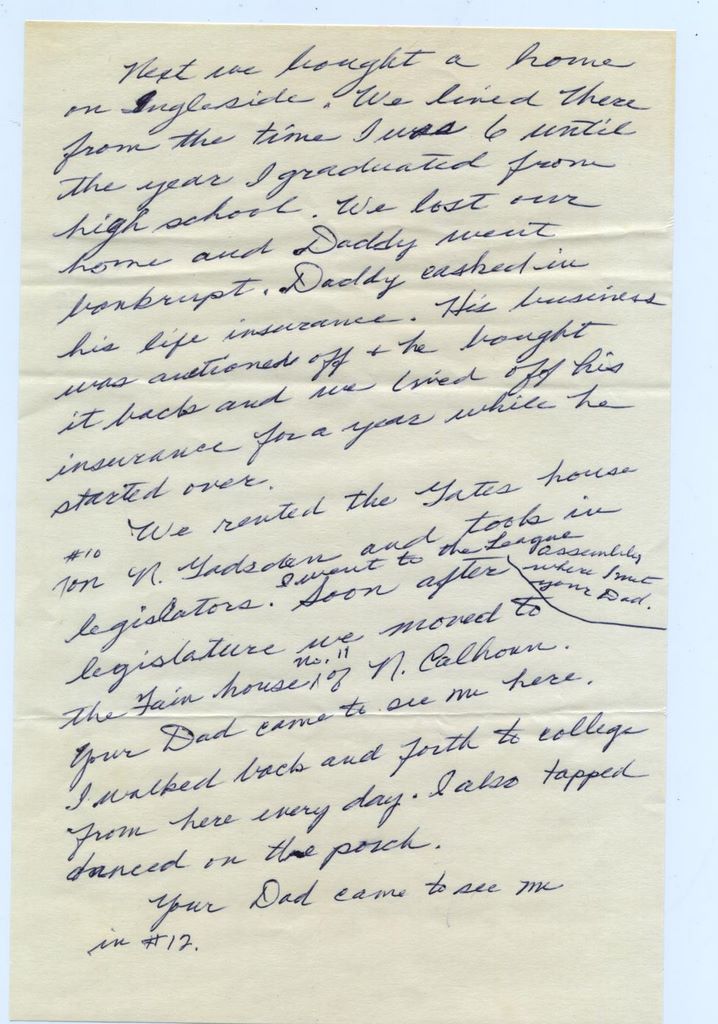 Next we bought a home
on Ingleside. We lived there
from the time I was 6 until
the year I graduated from
high school. We lost our
home and Daddy went
bankrupt. Daddy cashed in
his life insurance. His business
was auctioned off + he bought
it back and we lived off his
insurance for a year while he
started over.
We rented the Yates house
#10
on N. Gadsden and took in
legislators. I went to the League assembly
where I met
your Dad.
Soon after
legislature we moved to
the Fain house, no. 11 of N. Calhoun.
Your Dad came to see me here.
I walked back and forth to college
from here every day. I also tapped
danced on the porch.
Your Dad came to see me
in #12.